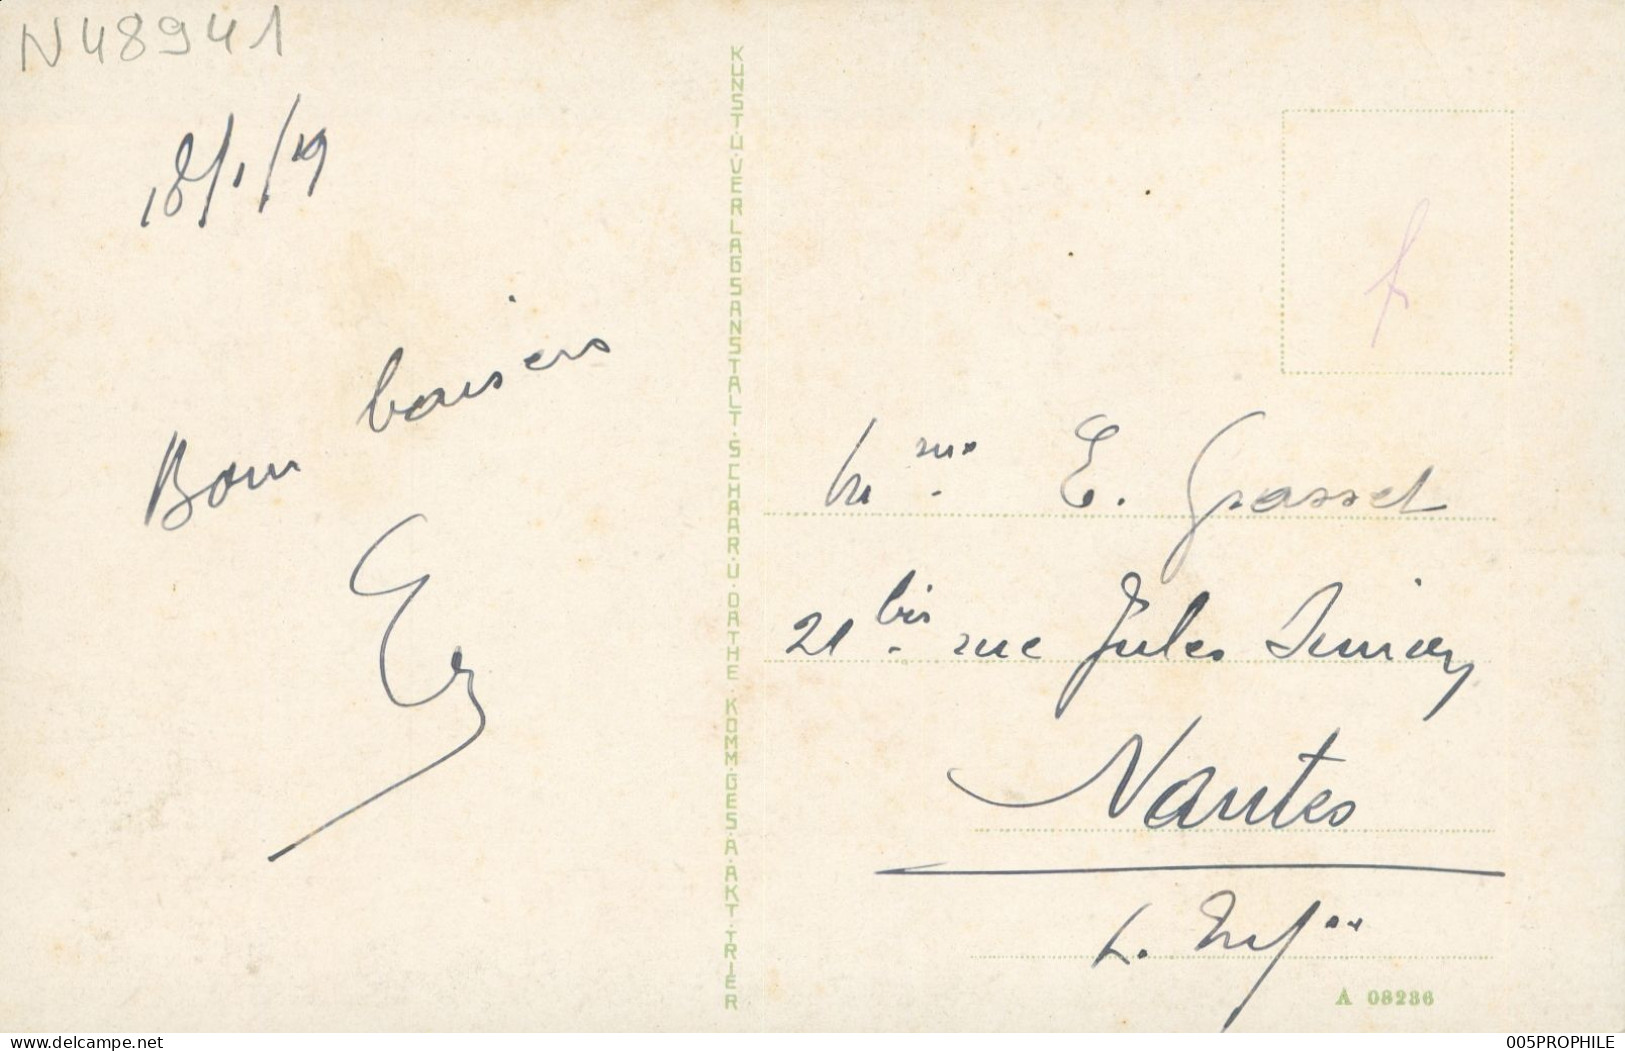 N48941
18/1/19
Bons baisers
KUNST·U·VERLAGSANSTALT·SCHAAR·U·DATHE·KOMM·GES·A·AKT·TRIER
Mme. E. Grasset
21 bis. rue Jules Simon
Nantes
L. Infre
A 08236
Delcampe.com
005PROPHILE